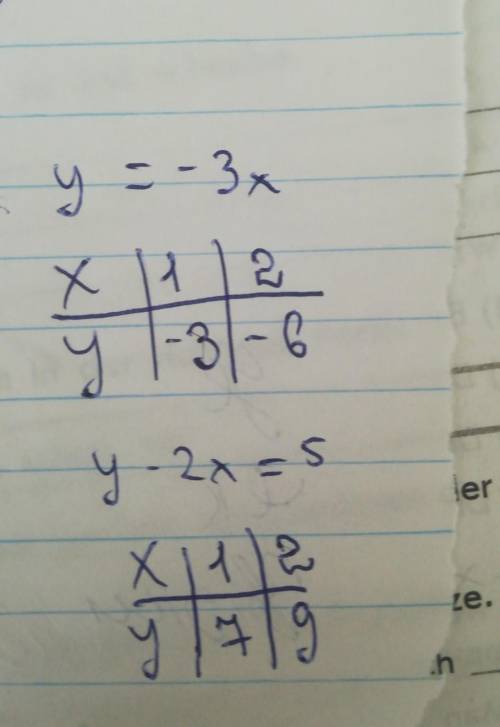 y = -3x
x | 1 | 2
y | -3 | -6
y - 2x = 5
x | 1 | 2
y | 7 | 9
ler
ze.